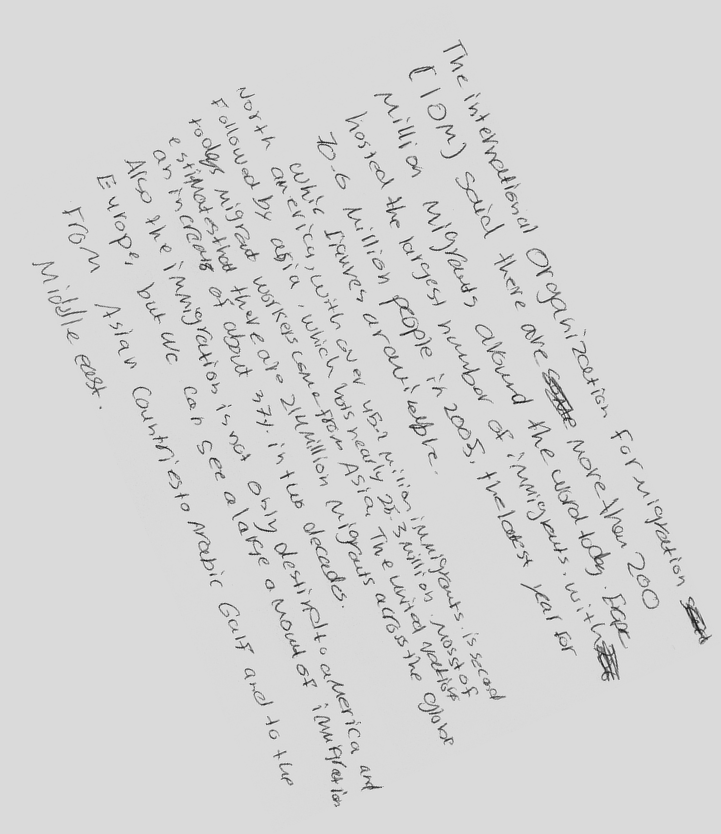 The international Organization for migration
(IOM) said there are more than 200
Million migrants around the word today. Europe
hosted the largest number of immigrants, with
70.6 million people in 2005, the latest year for
whic figures are available.
North america, with over 45.1 million immigrants, is second
Followed by asia, which hosts nearly 25.3 million. Mosst of
todays migrant workers come from Asia. The united nations
estimates that there are 214 million migrants across the globe
an increase of about 37%. in two decades.
Also the immigration is not only destined to america and
Europe, but we can see a large amount of immigration
From Asian Countries to Arabic Gulf and to the
Middle east.